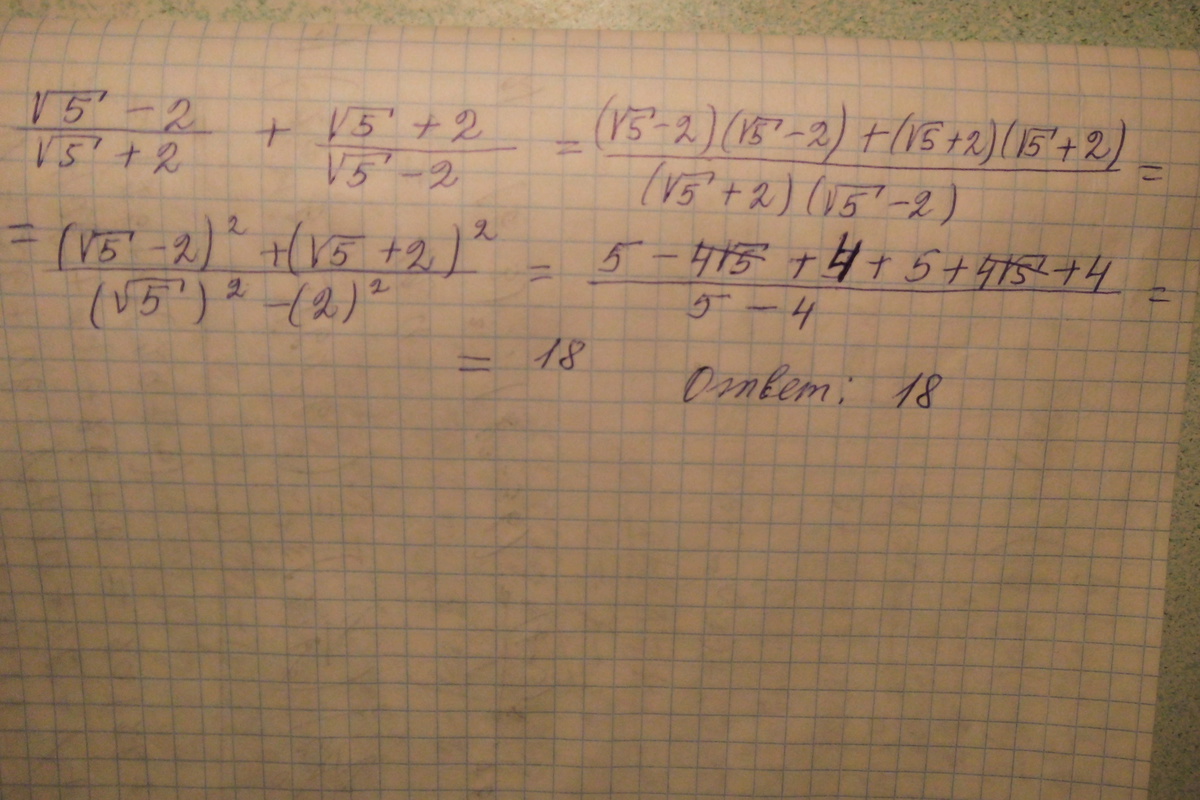 (√5 - 2)/(√5 + 2) + (√5 + 2)/(√5 - 2) = ((√5 - 2)(√5 - 2) + (√5 + 2)(√5 + 2))/((√5 + 2)(√5 - 2)) =
= ((√5 - 2)² + (√5 + 2)²)/((√5)² - (2)²) = (5 - 4√5 + 4 + 5 + 4√5 + 4)/(5 - 4) =
= 18 Ответ: 18